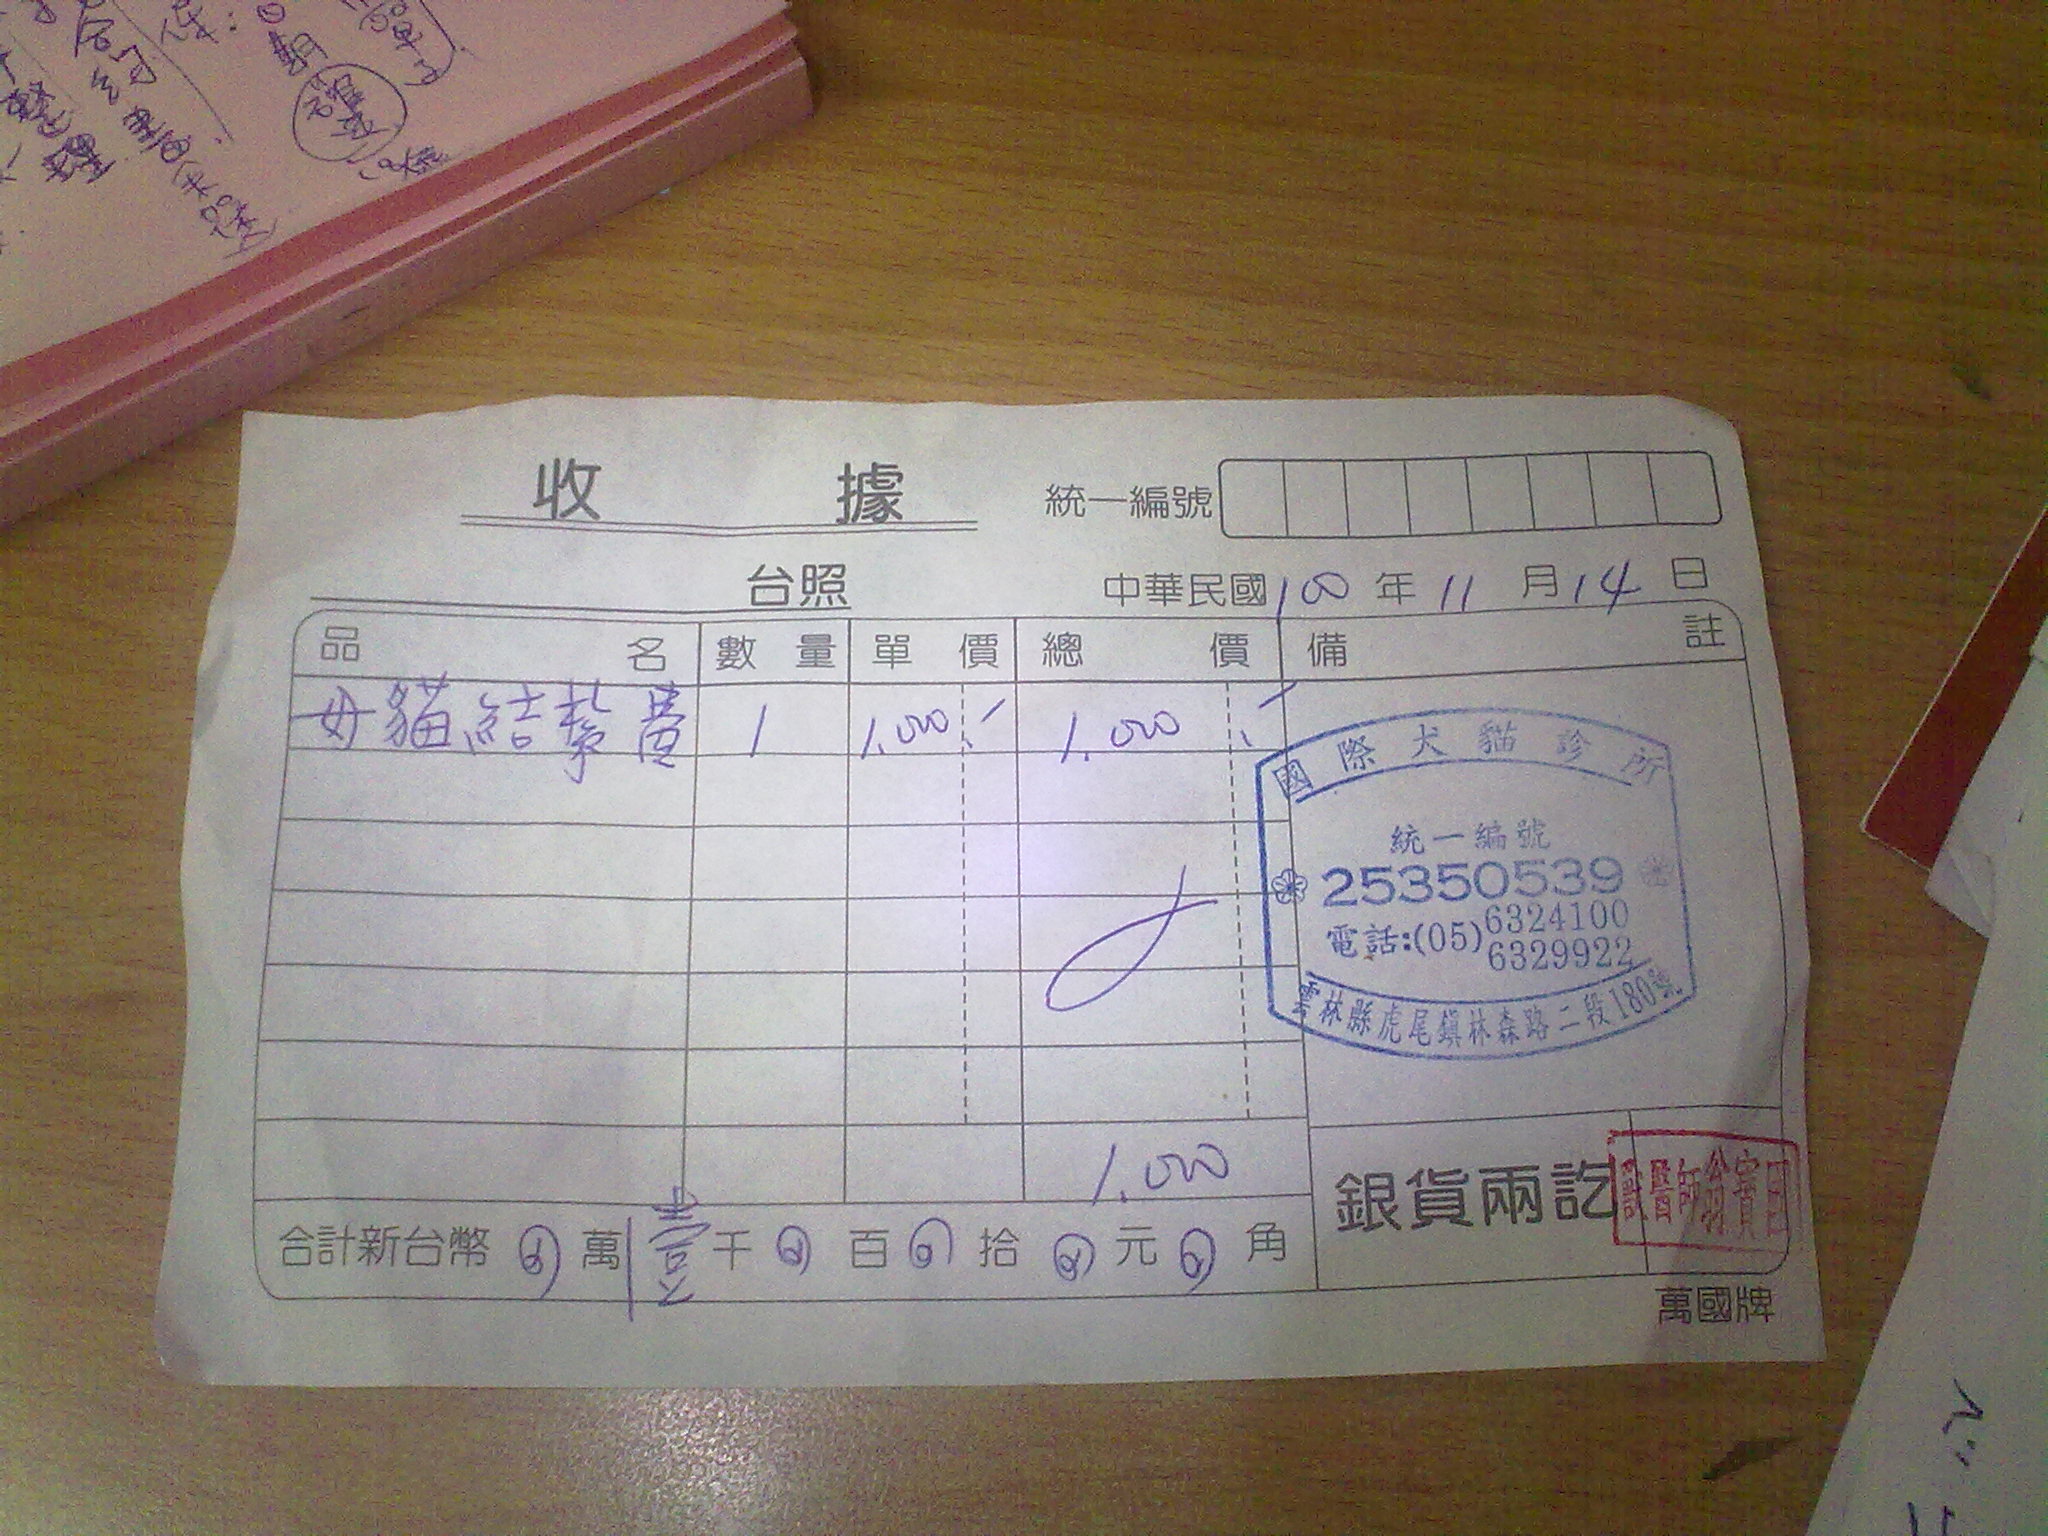 收據
統一編號
台照
中華民國100年11月14日
品名 數量 單價 總價 備註
母貓結紮費 1 1,000.- 1,000.-
國際犬貓診所
統一編號
25350539
電話:(05)6324100
6329922
雲林縣虎尾鎮林森路二段180號
1,000
銀貨兩訖
獸醫師翁寶
合計新台幣 0 萬 壹 千 0 百 0 拾 0 元 0 角
萬國牌